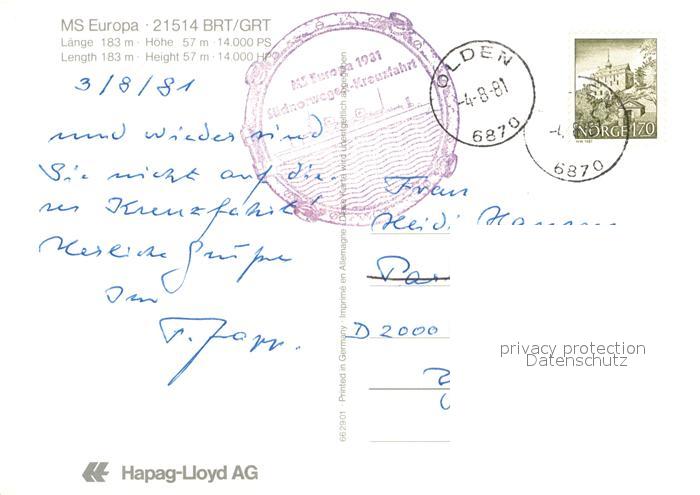 MS Europa · 21514 BRT/GRT
Länge 183 m · Höhe 57 m · 14.000 PS
Length 183 m · Height 57 m · 14.000 HP
3/8/81
und wieder sind
Sie nicht auf die-
ser Kreuzfahrt!
Herzliche Grüße
Ihr
Hapag-Lloyd AG
MS Europa 1981
Südnorwegen-Kreuzfahrt
662901 · Printed in Germany · Imprimé en Allemagne · Diese Karte wird unentgeltlich abgegeben
OLDEN
-4-8-81
6870
6870
NORGE 170
Frau
Heidi
D 2000
privacy protection
Datenschutz